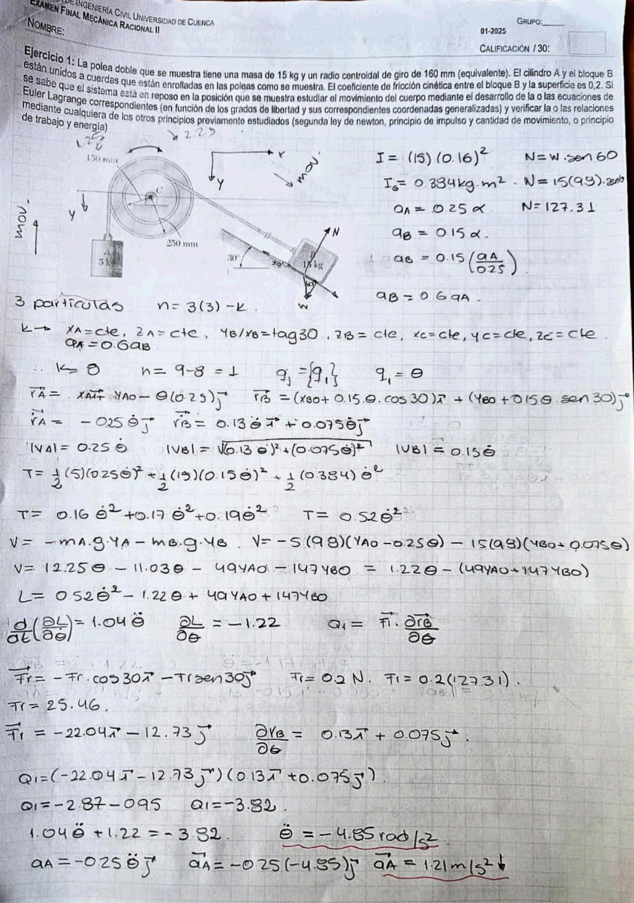 DE INGENIERÍA CIVIL UNIVERSIDAD DE CUENCA
EXAMEN FINAL MECÁNICA RACIONAL II
NOMBRE:
GRUPO:
01-2025
CALIFICACIÓN / 30:
Ejercicio 1: La polea doble que se muestra tiene una masa de 15 kg y un radio centroidal de giro de 160 mm (equivalente). El cilindro A y el bloque B
están unidos a cuerdas que están enrolladas en las poleas como se muestra. El coeficiente de fricción cinética entre el bloque B y la superficie es 0,2. Si
se sabe que el sistema está en reposo en la posición que se muestra estudiar el movimiento del cuerpo mediante el desarrollo de la o las ecuaciones de
Euler Lagrange correspondientes (en función de los grados de libertad y sus correspondientes coordenadas generalizadas) y verificar la o las relaciones
mediante cualquiera de los otros principios previamente estudiados (segunda ley de newton, principio de impulso y cantidad de movimiento, o principio
de trabajo y energía)
2.25
150 mm
C
x
y
mov.
y
mov.
250 mm
A
5 kg
30°
30°
15 kg
N
W
I = (15)(0.16)²
N = W.sen60
I_G = 0.384 kg.m²
N = 15(9.8).sen60
a_A = 0.25 α
N = 127.31
a_B = 0.15 α.
a_B = 0.15 (a_A/0.25)
a_B = 0.6 a_A.
3 partículas n = 3(3) - k.
k → x_A = cte, z_A = cte, y_B/x_B = tag30, z_B = cte, x_C = cte, y_C = cte, z_C = cte.
a_A = 0.6 a_B.
∴ k = 8 n = 9-8 = 1 q_j = {q_1} q_1 = θ
r_A = x_A i + y_A0 - θ(0.25) j r_B = (x_B0 + 0.15.θ.cos30) i + (y_B0 + 0.15θ.sen30) j
ṙ_A = -0.25 θ̇ j ṙ_B = 0.13 θ̇ i + 0.075 θ̇ j
|V_A| = 0.25 θ̇ |V_B| = √((0.13 θ̇)² + (0.075θ̇)²) |V_B| = 0.15 θ̇
T = 1/2 (5)(0.25θ̇)² + 1/2 (15)(0.15θ̇)² + 1/2 (0.384) θ̇²
T = 0.16 θ̇² + 0.17 θ̇² + 0.19 θ̇² T = 0.52 θ̇²
V = -m_A.g.y_A - m_B.g.y_B. V = -5(9.8)(y_A0 - 0.25θ) - 15(9.8)(y_B0 + 0.075θ)
V = 12.25θ - 11.03θ - 49y_A0 - 147y_B0 = 1.22θ - (49y_A0 + 147y_B0)
L = 0.52 θ̇² - 1.22 θ + 49y_A0 + 147y_B0
d/dt (∂L/∂θ̇) = 1.04 θ̈ ∂L/∂θ = -1.22 Q_1 = F_1 . ∂r_B/∂θ
F_r = -Fr.cos30 i - Fr sen30 j Fr = 0.2 N. Fr = 0.2(127.31).
Fr = 25.46.
F_1 = -22.04 i - 12.73 j ∂r_B/∂θ = 0.13 i + 0.075 j.
Q_1 = (-22.04 i - 12.73 j)(0.13 i + 0.075 j).
Q_1 = -2.87 - 0.95 Q_1 = -3.82.
1.04 θ̈ + 1.22 = -3.82. θ̈ = -4.85 rad/s².
a_A = -0.25 θ̈ j a_A = -0.25 (-4.85) j a_A = 1.21 m/s² ↓